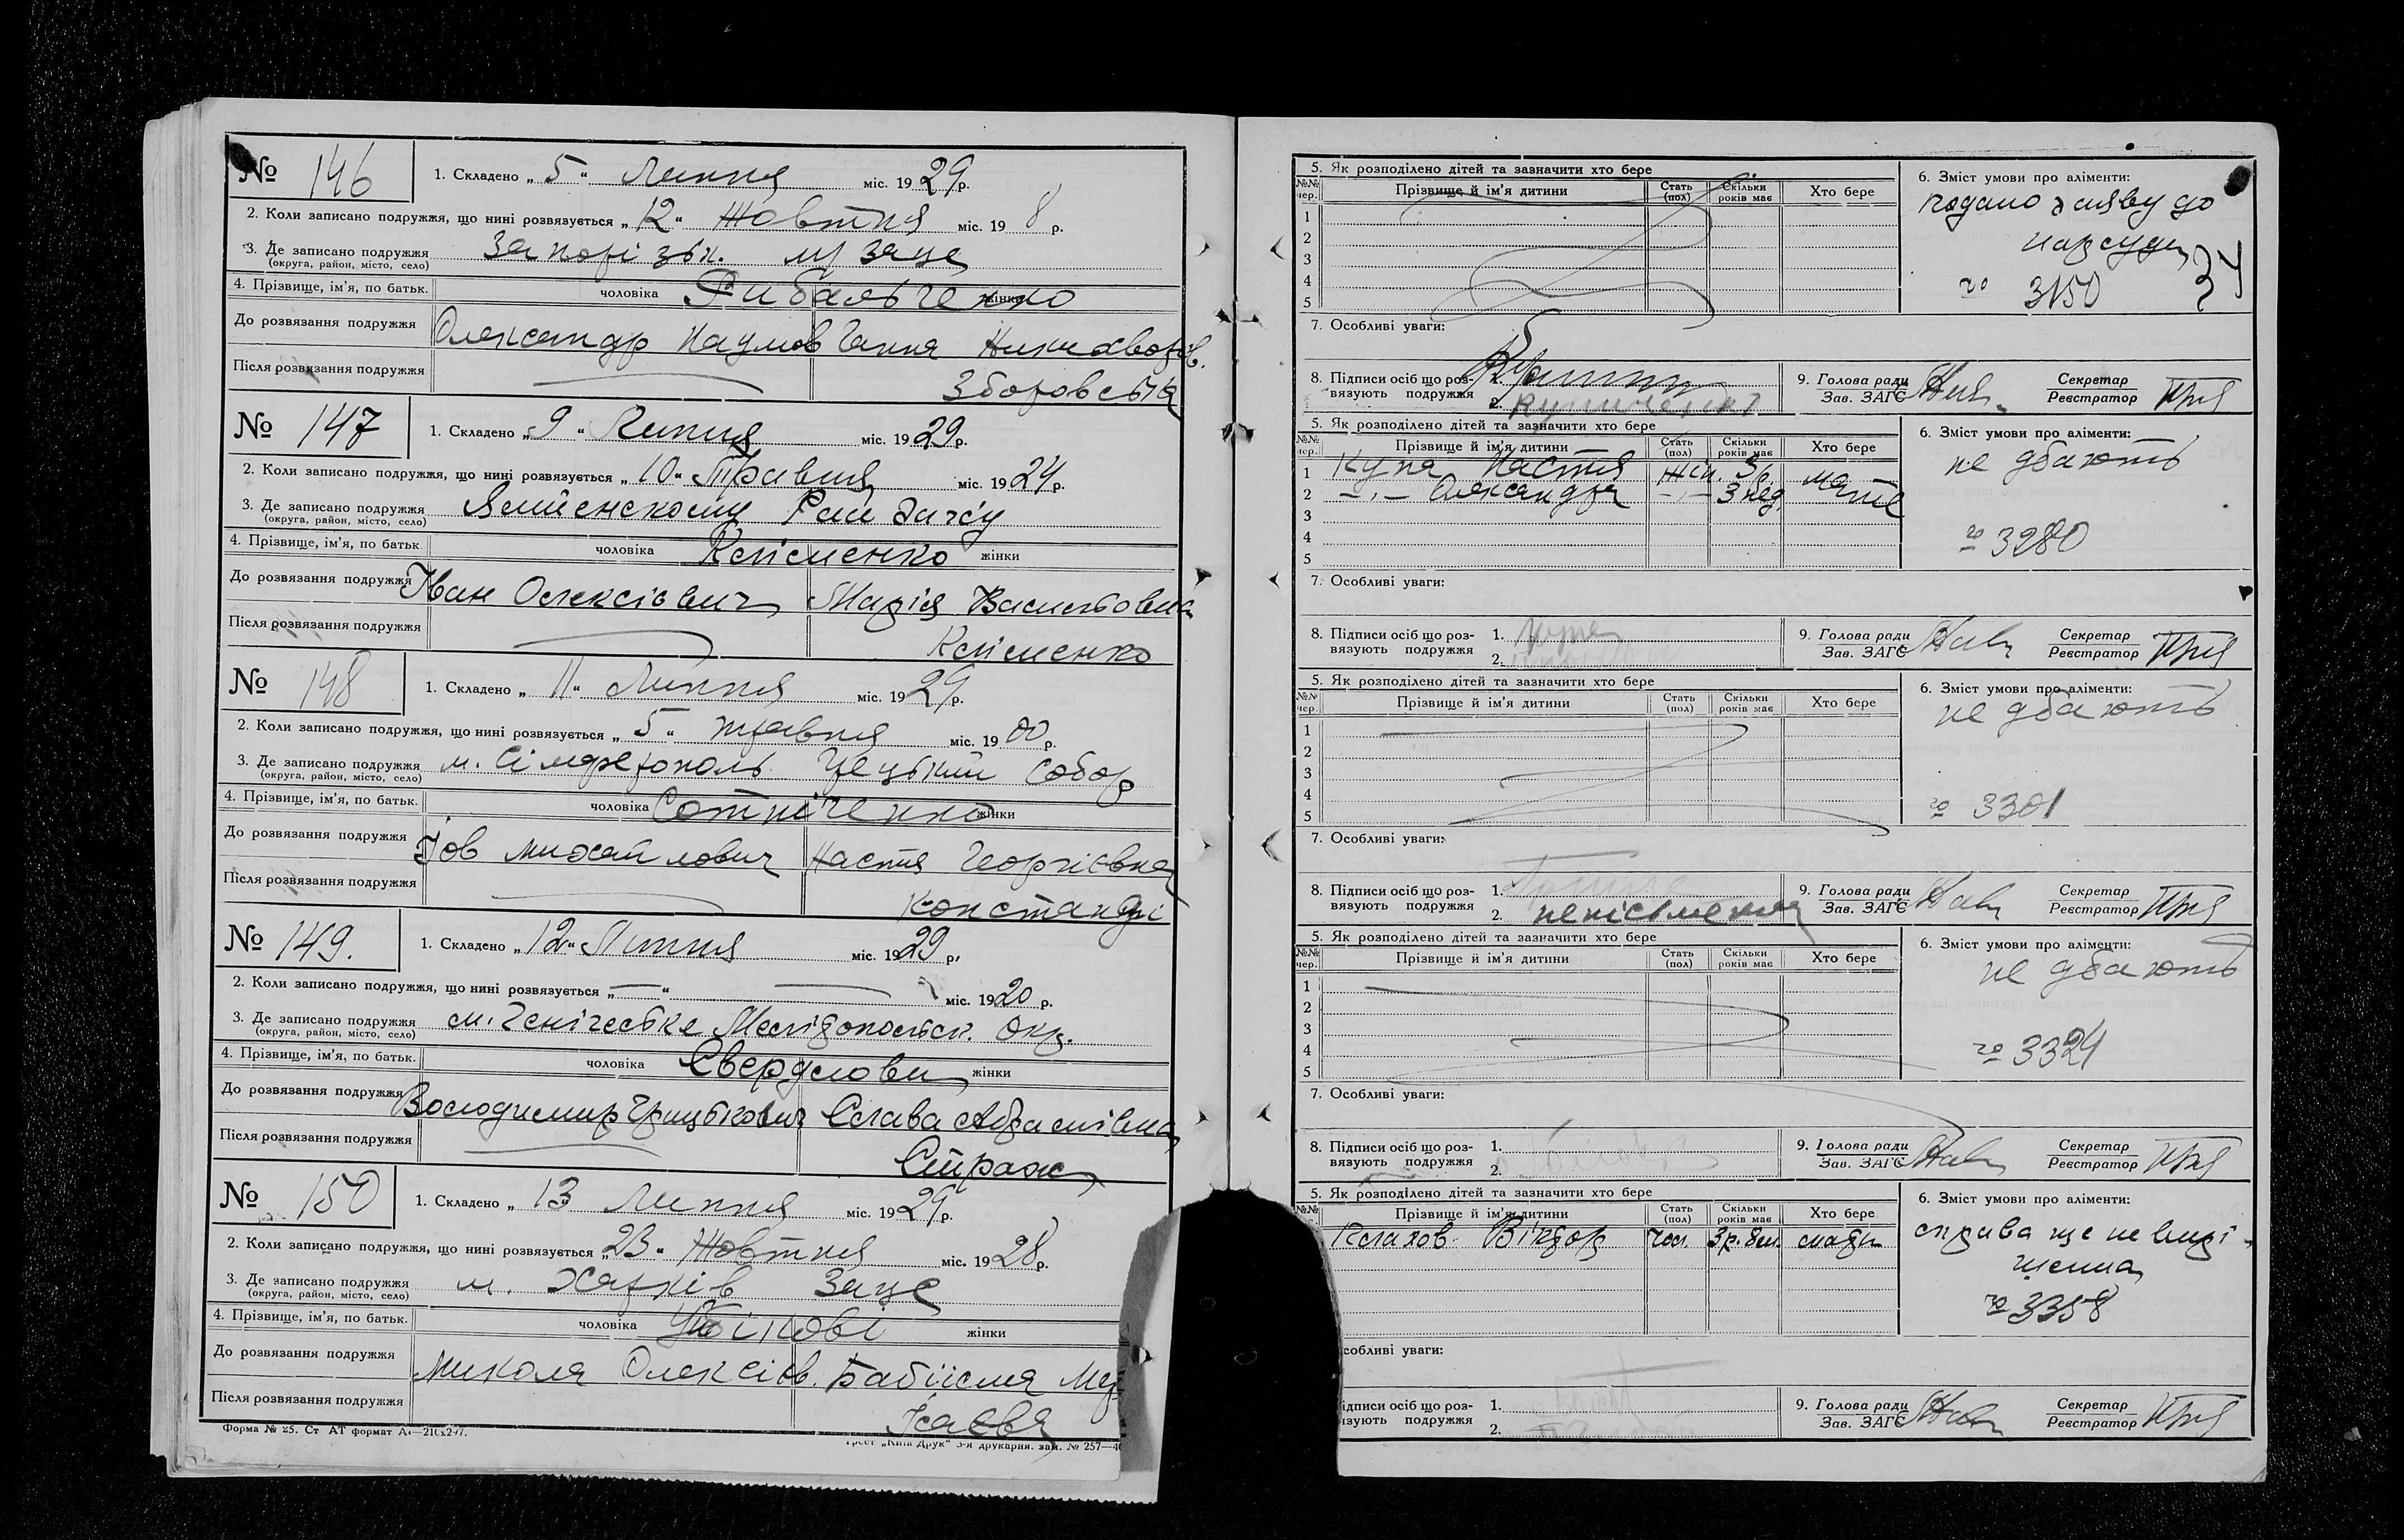 № 146 1. Складено „ 5 “ Липня міс. 1929 р.
2. Коли записано подружжя, що нині розвязується „ 12 “ Жовтня міс. 19 8 р.
3. Де записано подружжя Запорізьк.
(округа, район, місто, село)
4. Прізвище, ім'я, по батьк. чоловіка Рибальченко жінки
До розвязання подружжя Олександр Наумов Ганна
Після розвязання подружжя Зборовська
№ 147 1. Складено „ 9 “ Липня міс. 1929 р.
2. Коли записано подружжя, що нині розвязується „ 10 “ Травня міс. 1924 р.
3. Де записано подружжя
(округа, район, місто, село)
4. Прізвище, ім'я, по батьк. чоловіка Клименко жінки
До розвязання подружжя Іван Олексієвич Марія Васильовна
Після розвязання подружжя Клименко
№ 148 1. Складено „ 11 “ Липня міс. 1929 р.
2. Коли записано подружжя, що нині розвязується „ 5 “ травня міс. 1900 р.
3. Де записано подружжя м. Сімферополь Грецький собор
(округа, район, місто, село)
4. Прізвище, ім'я, по батьк. чоловіка Сотніченко жінки
До розвязання подружжя Іов михайлович Настя Георгієвна
Після розвязання подружжя Константи
№ 149. 1. Складено „ 12 “ Липня міс. 1929 р.
2. Коли записано подружжя, що нині розвязується „ — “ — міс. 1920 р.
3. Де записано подружжя м. Генічеське Мелітопольськ. Окр.
(округа, район, місто, село)
4. Прізвище, ім'я, по батьк. чоловіка Свердлови жінки
До розвязання подружжя Володимир Єлава Абрамівна
Після розвязання подружжя Страж
№ 150 1. Складено „ 13 Липня міс. 1929 р.
2. Коли записано подружжя, що нині розвязується „ 23 “ Жовтня міс. 1928 р.
3. Де записано подружжя м. Харків Загс
(округа, район, місто, село)
4. Прізвище, ім'я, по батьк. чоловіка жінки
До розвязання подружжя Микола Олексієв.
Після розвязання подружжя Ісаєва
Форма № 25. Ст АТ формат
Трест „Київ Друк“ 3-я друкарня. зам. № 257—
5. Як розподілено дітей та зазначити хто бере
№№ чер. Прізвище й ім'я дитини Стать (пол) Скільки років має Хто бере
1
2
3
4
5
6. Зміст умови про аліменти:
подано заяву до
нарсуду
№ 3150
34
7. Особливі уваги:
8. Підписи осіб що розвязують подружжя 1.
2.
9. Голова ради
Зав. ЗАГС
Секретар
Реєстратор
5. Як розподілено дітей та зазначити хто бере
№№ чер. Прізвище й ім'я дитини Стать (пол) Скільки років має Хто бере
1 Настя жін. 3р. мати
2 —„— Олександра —„— 3 нед.
3
4
5
6. Зміст умови про аліменти:
не дбають
№ 3280
7. Особливі уваги:
8. Підписи осіб що розвязують подружжя 1.
2.
9. Голова ради
Зав. ЗАГС
Секретар
Реєстратор
5. Як розподілено дітей та зазначити хто бере
№№ чер. Прізвище й ім'я дитини Стать (пол) Скільки років має Хто бере
1
2
3
4
5
6. Зміст умови про аліменти:
не дбають
№ 3301
7. Особливі уваги:
8. Підписи осіб що розвязують подружжя 1.
2. непісьменна
9. Голова ради
Зав. ЗАГС
Секретар
Реєстратор
5. Як розподілено дітей та зазначити хто бере
№№ чер. Прізвище й ім'я дитини Стать (пол) Скільки років має Хто бере
1
2
3
4
5
6. Зміст умови про аліменти:
не дбають
№ 3324
7. Особливі уваги:
8. Підписи осіб що розвязують подружжя 1.
2.
9. Голова ради
Зав. ЗАГС
Секретар
Реєстратор
5. Як розподілено дітей та зазначити хто бере
№№ Прізвище й ім'я дитини Стать (пол) Скільки років має Хто бере
Віктор чол. 3р. 8м. мати
6. Зміст умови про аліменти:
справа ще не вирі-
шена
№ 3358
собливі уваги:
ідписи осіб що роз-
язують подружжя 1.
2.
9. Голова ради
Зав. ЗАГС
Секретар
Реєстратор